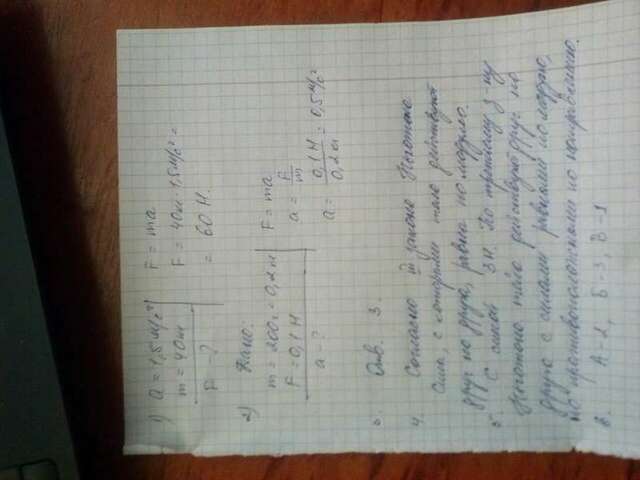 1) a = 1,5 м/с² F = ma
m = 40 кг F = 40кг · 1,5 м/с² =
F - ? = 60 Н.
2) Дано:
m = 200 г = 0,2 кг F = ma
F = 0,1 Н a = F/m
a - ? a = 0,1 Н / 0,2 кг = 0,5 м/с²
3. Отв. 3.
4. Согласно III закона Ньютона
сила, с которыми тела действуют
друг на друга, равны по модулю.
5 С силой 3 Н. По третьему з-ну
Ньютона тела действуют друг на
друга с силами равными по модулю,
но противоположными по направлению.
6. А-2, Б-3, В-1